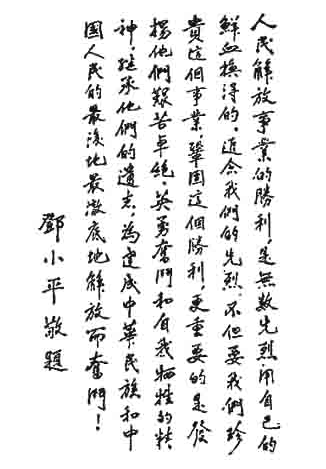 人民解放事業的勝利，是無数先烈用自己的
鮮血換得的。追念我們的先烈，不但要我們珍
貴這個事業，鞏固這個勝利，更重要的是發
揚他們艱苦卓絕、英勇奮鬥和自我犧牲的精
神，繼承他們的遺志，為達成中華民族和中
國人民的最後地最澈底地解放而奮鬥！
鄧小平敬題